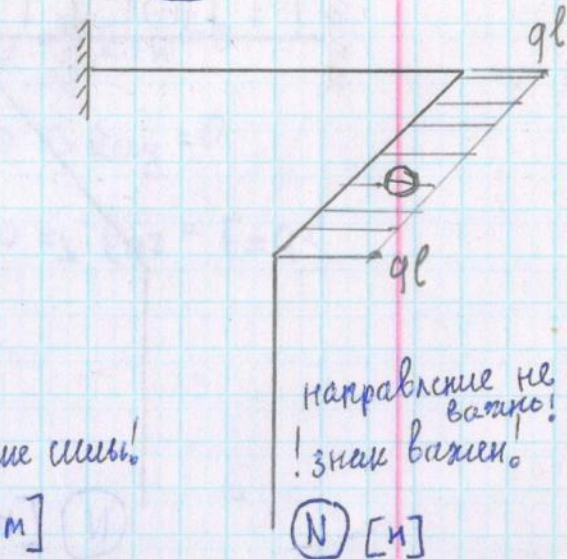 ql
⊖
ql
направление не
важно!
! знак важен!
ие силы!
m]
N [н]